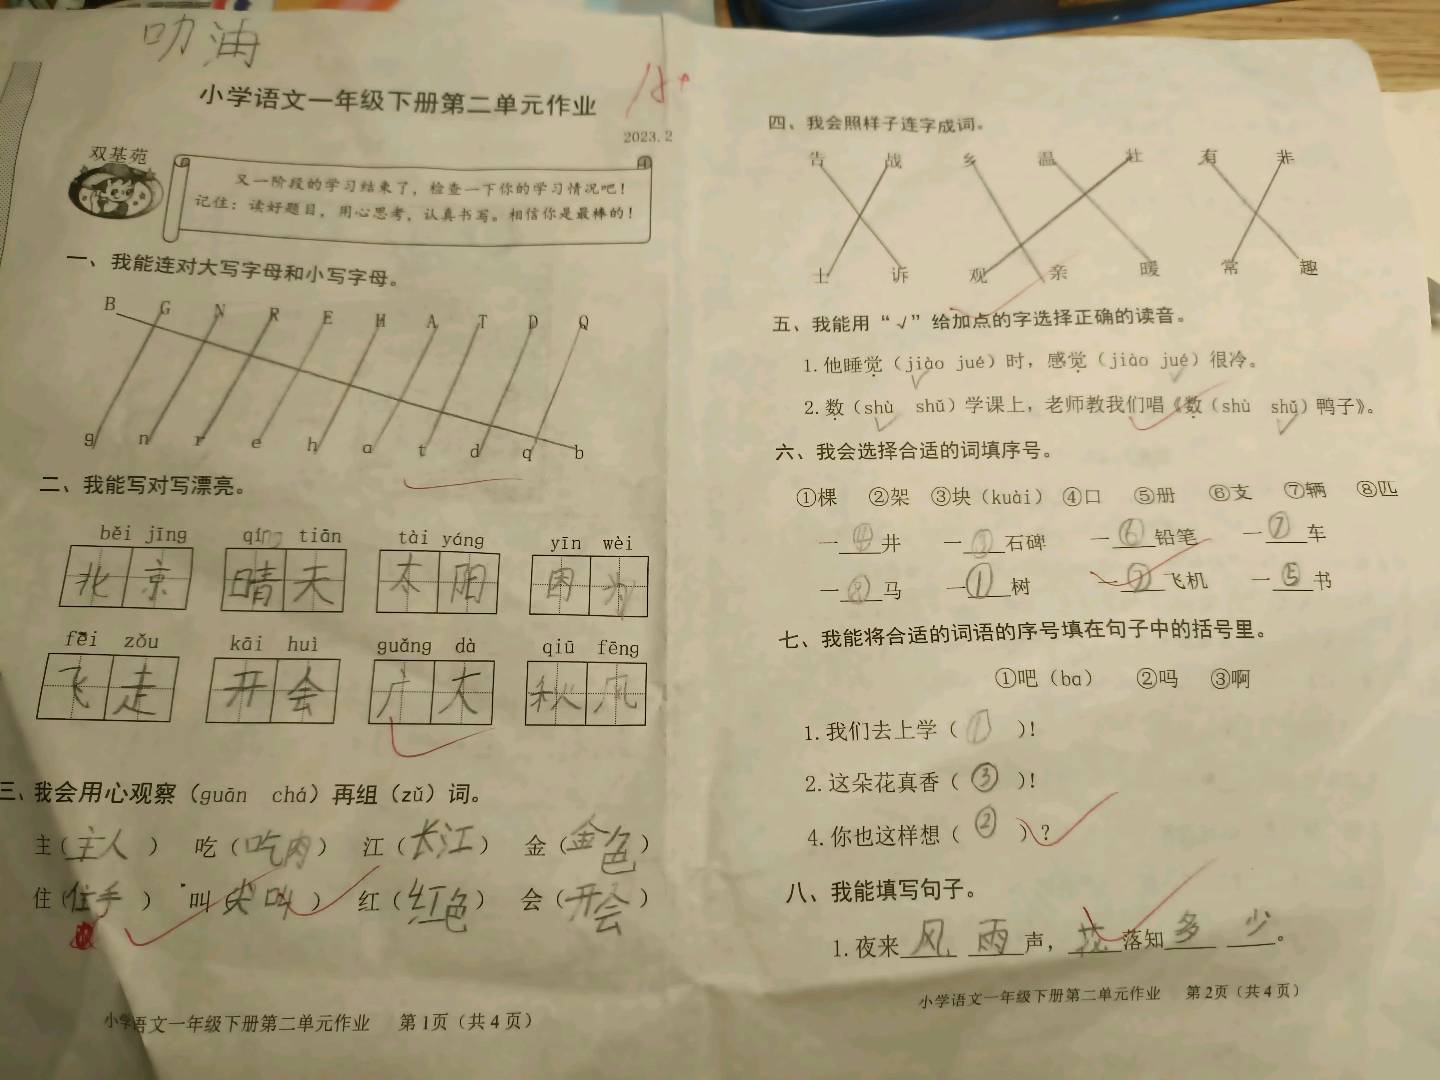 叻油
小学语文一年级下册第二单元作业
2023.2
双基苑
又一阶段的学习结束了，检查一下你的学习情况吧！
记住：读好题目，用心思考，认真书写。相信你是最棒的！
一、我能连对大写字母和小写字母。
B G N R E H A T D Q
g n r e h a t d q b
二、我能写对写漂亮。
běi jīng qíng tiān tài yáng yīn wèi
北京 晴天 太阳 因为
fēi zǒu kāi huì guǎng dà qiū fēng
飞走 开会 广大 秋风
三、我会用心观察（guān chá）再组（zǔ）词。
主（主人） 吃（吃肉） 江（长江） 金（金色）
住（住手） 叫（尖叫） 红（红色） 会（开会）
小学语文一年级下册第二单元作业 第1页（共4页）
四、我会照样子连字成词。
告 战 乡 温 壮 有 非
士 诉 观 亲 暖 常 趣
五、我能用“√”给加点的字选择正确的读音。
1.他睡觉（jiào jué）时，感觉（jiào jué）很冷。
2.数（shù shǔ）学课上，老师教我们唱《数（shù shǔ）鸭子》。
六、我会选择合适的词填序号。
①棵 ②架 ③块（kuài） ④口 ⑤册 ⑥支 ⑦辆 ⑧匹
一④井 一③石碑 一⑥铅笔 一⑦车
一⑧马 一①树 一②飞机 一⑤书
七、我能将合适的词语的序号填在句子中的括号里。
①吧（ba） ②吗 ③啊
1.我们去上学（①）！
2.这朵花真香（③）！
4.你也这样想（②）？
八、我能填写句子。
1.夜来风 雨声，花落知多 少。
小学语文一年级下册第二单元作业 第2页（共4页）